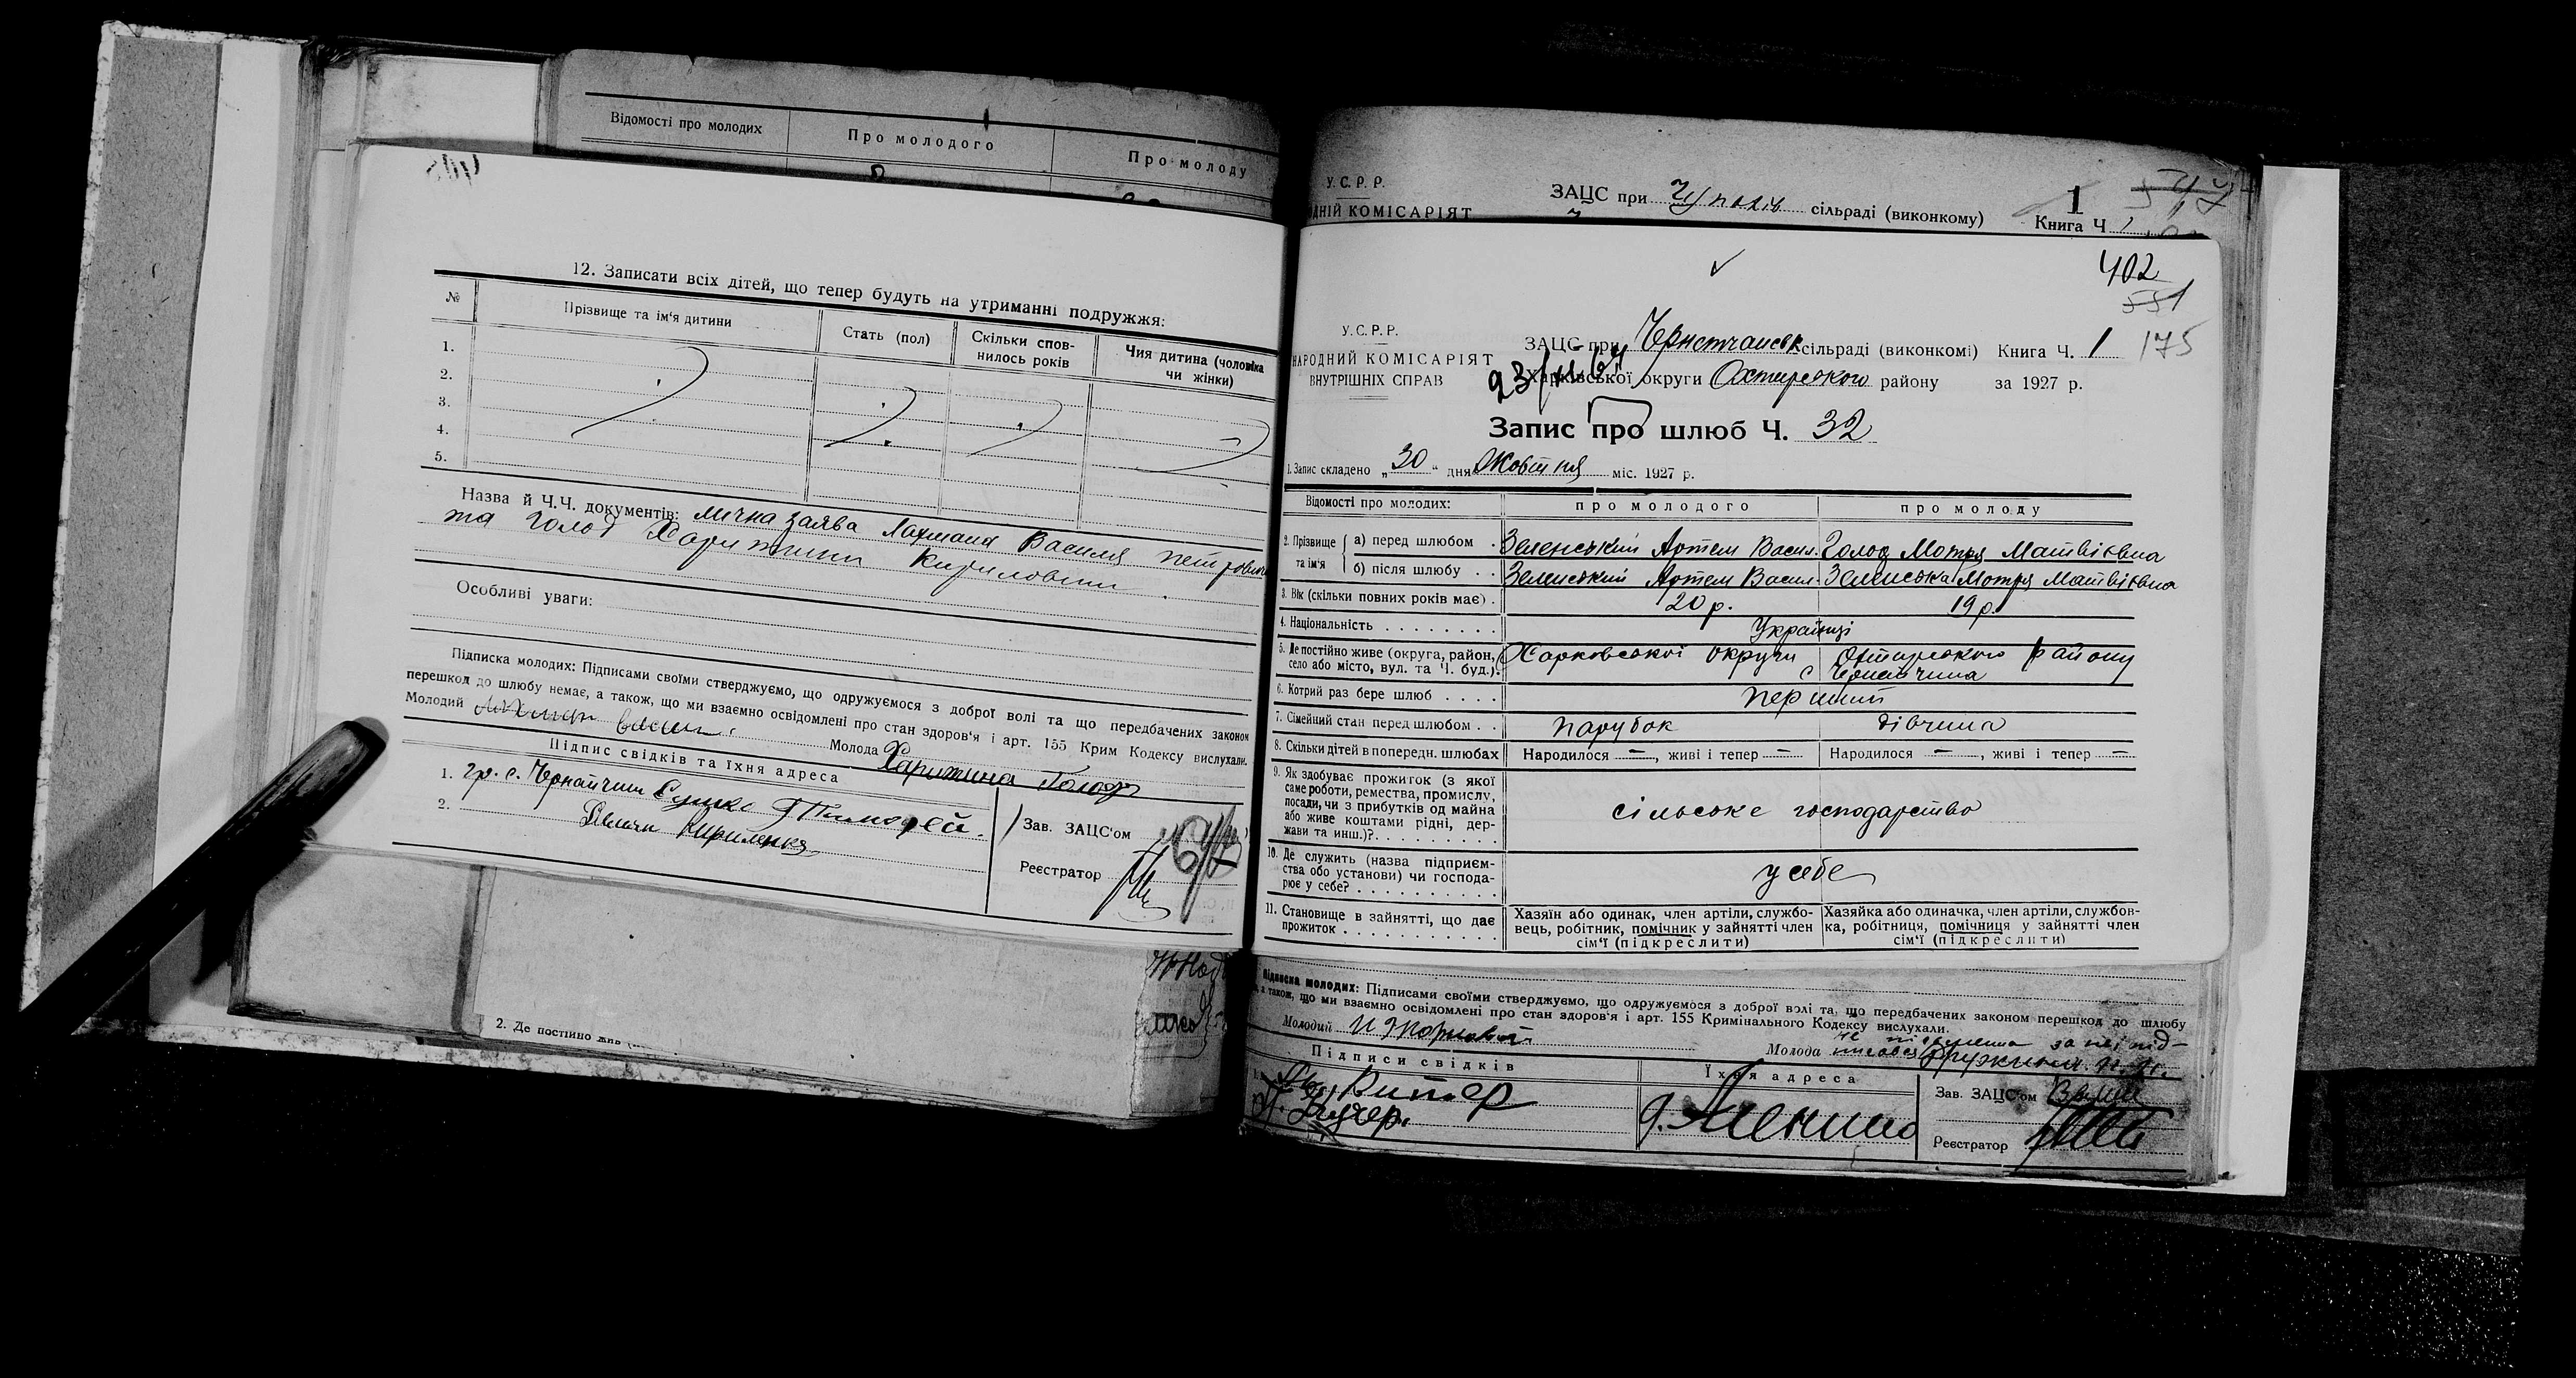 Відомості про молодих
Про молодого
Про молоду
12. Записати всіх дітей, що тепер будуть на утриманні подружжя:
№
Прізвище та ім'я дитини
Стать (пол)
Скільки спов-
нилось років
Чия дитина (чоловіка
чи жінки)
1.
2.
3.
4.
5.
Назва й Ч.Ч. документів: лична заява Лахмана Василя Петрович
та Голод Харитини Кириловни.
Особливі уваги:
Підписка молодих: Підписами своїми стверджуємо, що одружуємося з доброї волі та що передбачених законом
перешкод до шлюбу немає, а також, що ми взаємно освідомлені про стан здоров'я і арт. 155 Крим Кодексу вислухали.
Молодий
Молода Харитина Голод
Підпис свідків та їхня адреса
1. гр. с. Чернеччини Сушко Тимофей.
2. Кириленко
Зав. ЗАЦС'ом
Реєстратор
2. Де постійно жив
У.С.Р.Р.
ДНІЙ КОМІСАРІЯТ
ЗАЦС при Чупахів сільраді (виконкому)
1
Книга Ч. 1
402
551
175
У.С.Р.Р.
НАРОДНИЙ КОМІСАРІЯТ
ВНУТРІШНІХ СПРАВ
ЗАЦС при сільраді (виконкомі) Книга Ч. 1
Харківської округи Охтирського району за 1927 р.
Запис про шлюб Ч. 32
1. Запис складено „30" дня Жовтня міс. 1927 р.
Відомості про молодих:
про молодого
про молоду
2. Прізвище та ім'я
а) перед шлюбом . Зеленський Артем Васил. Голод Мотря Матвієвна
б) після шлюбу . . Зеленський Артем Васил. Зеленська Мотря Матвієвна
3. Вік (скільки повних років має) . 20 р. 19 р.
4. Національність . . . . . . . . Українці
5. Де постійно живе (округа, район, Харковської округи Охтирського району
село або місто, вул. та Ч. буд.). с Чернеччина
6. Котрий раз бере шлюб . . . . Перший
7. Сімейний стан перед шлюбом . . парубок дівчина
8. Скільки дітей в попередн. шлюбах Народилося —, живі і тепер — Народилося —, живі і тепер —
9. Як здобуває прожиток (з якої
саме роботи, ремества, промислу,
посади, чи з прибутків од майна
або живе коштами рідні, дер-
жави та инш.)?. . . . . . . . .
сільське господарство
10. Де служить (назва підприєм-
ства обо установи) чи господа-
рює у себе? . . . . . . . . . .
у себе
11. Становище в зайнятті, що дає
прожиток . . . . . . . . . . .
Хазяїн або одинак, член артіли, службо-
вець, робітник, помічник у зайнятті член
сім'ї (підкреслити)
Хазяйка або одиначка, член артіли, службов-
ка, робітниця, помічниця у зайнятті член
сім'ї (підкреслити)
Підписка молодих: Підписами своїми стверджуємо, що одружуємося з доброї волі та, що передбачених законом перешкод до шлюбу
а також, що ми взаємно освідомлені про стан здоров'я і арт. 155 Кримінального Кодексу вислухали.
Молодий
Молода
Підписи свідків
Їхня адреса
Зав. ЗАЦС'ом
Реєстратор